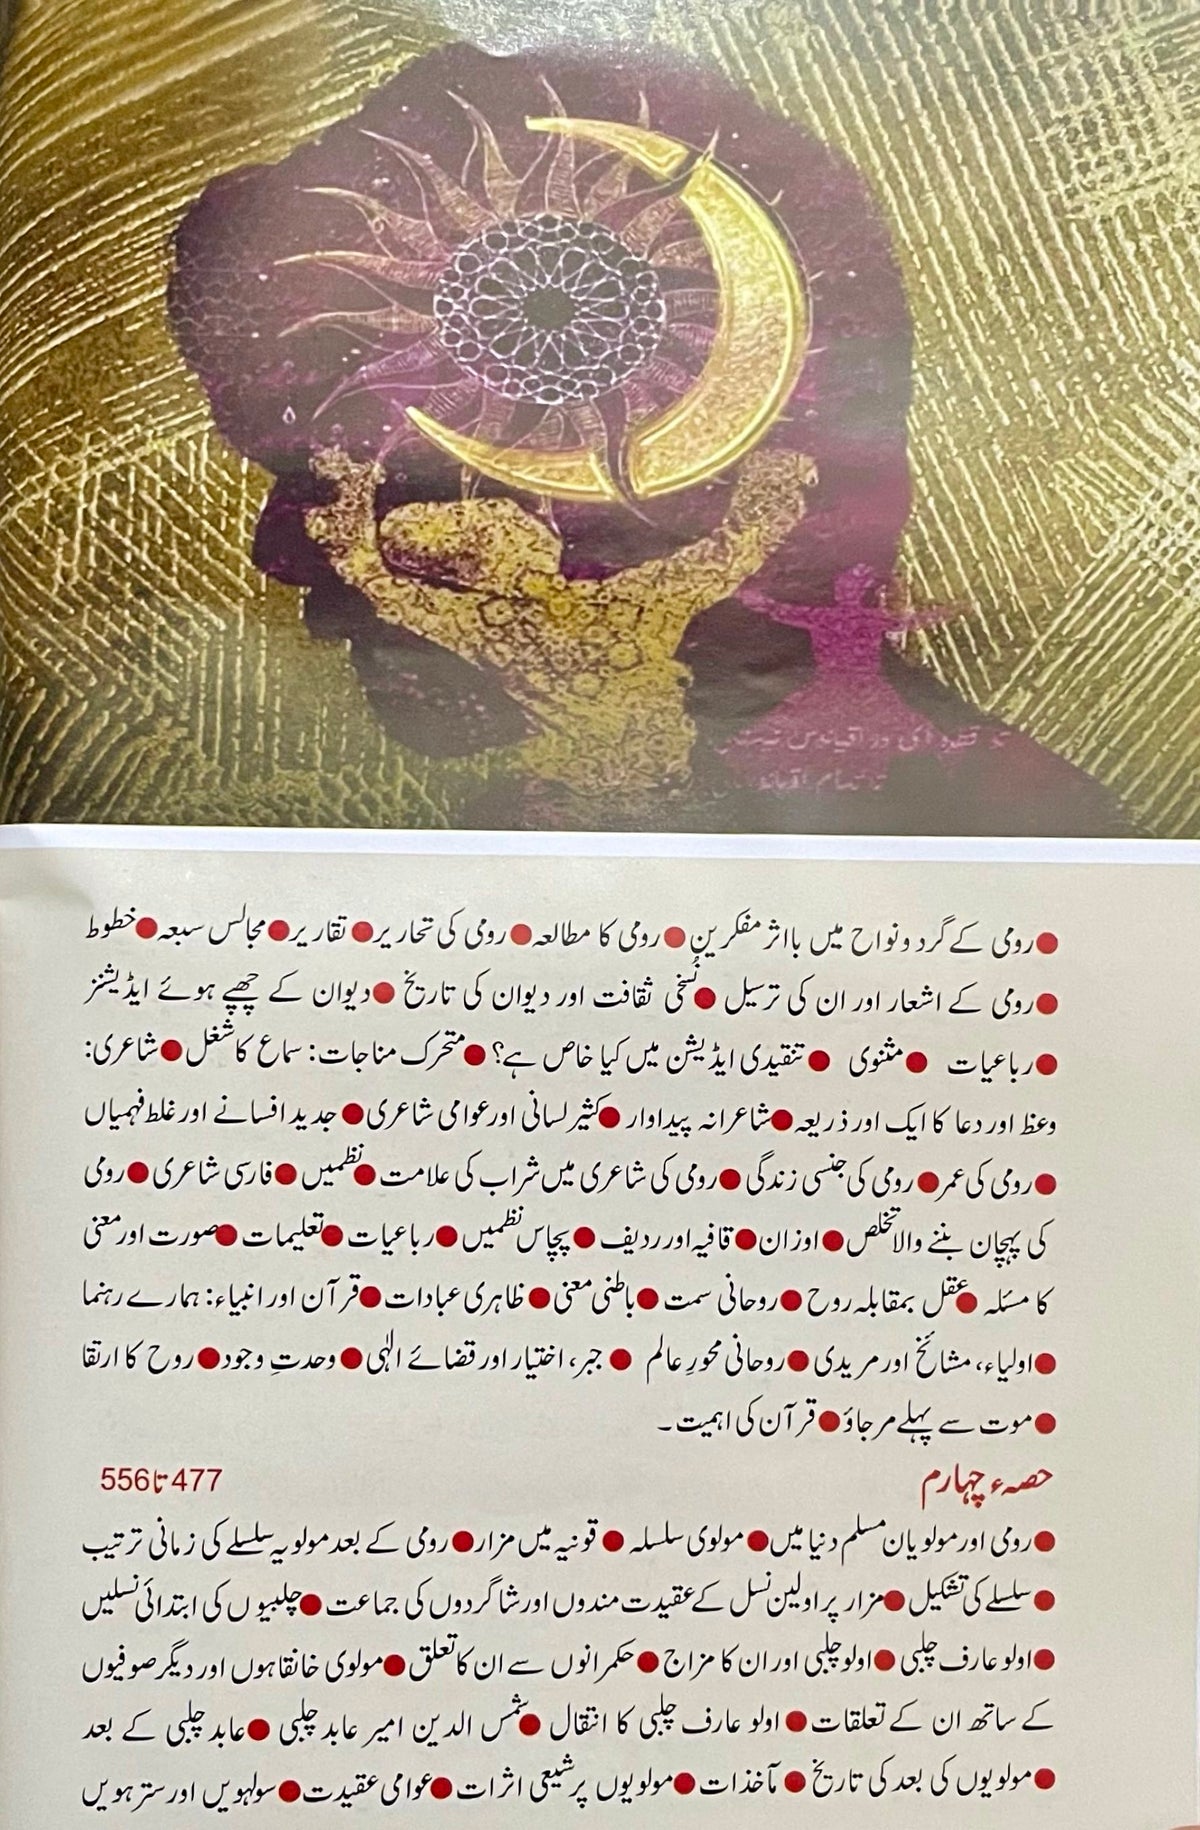 ●رومی کے گرد ونواح میں بااثر مفکرین●رومی کا مطالعہ●رومی کی تحاریر●تقاریر●مجالس سبعہ●خطوط
●رومی کے اشعار اور ان کی ترسیل ●نُسخی ثقافت اور دیوان کی تاریخ ●دیوان کے چھپے ہوئے ایڈیشنز
●رباعیات ●مثنوی ●تنقیدی ایڈیشن میں کیا خاص ہے؟ ●متحرک مناجات: سماع کا شغل●شاعری:
وعظ اور دعا کا ایک اور ذریعہ●شاعرانہ پیداوار ●کثیر لسانی اور عوامی شاعری● جدید افسانے اور غلط فہمیاں
●رومی کی عمر●رومی کی جنسی زندگی ●رومی کی شاعری میں شراب کی علامت ●نظمیں●فارسی شاعری ●رومی
کی پہچان بننے والا تخلص●اوزان●قافیہ اور ردیف ●پچاس نظمیں●رباعیات ●تعلیمات ●صورت اور معنی
کا مسئلہ ●عقل بمقابلہ روح ●روحانی سمت ●باطنی معنی●ظاہری عبادات●قرآن اور انبیاء: ہمارے رہنما
●اولیاء، مشائخ اور مریدی ●روحانی محورِ عالم ●جبر، اختیار اور قضائے الٰہی●وحدتِ وجود●روح کا ارتقا
●موت سے پہلے مر جاؤ●قرآن کی اہمیت۔
حصہء چہارم 477 تا 556
●رومی اور مولویان مسلم دنیا میں●مولوی سلسلہ ●قونیہ میں مزار●رومی کے بعد مولویہ سلسلے کی زمانی ترتیب
●سلسلے کی تشکیل ●مزار پر اولین نسل کے عقیدت مندوں اور شاگردوں کی جماعت ●چلبیوں کی ابتدائی نسلیں
●اولو عارف چلبی ●اولو چلبی اور ان کا مزاج ●حکمرانوں سے ان کا تعلق●مولوی خانقاہوں اور دیگر صوفیوں
کے ساتھ ان کے تعلقات ●اولو عارف چلبی کا انتقال ●شمس الدین امیر عابد چلبی ●عابد چلبی کے بعد
●مولویوں کی بعد کی تاریخ ●مآخذات ●مولویوں پر شیعی اثرات ●عوامی عقیدت●سولہویں اور سترہویں